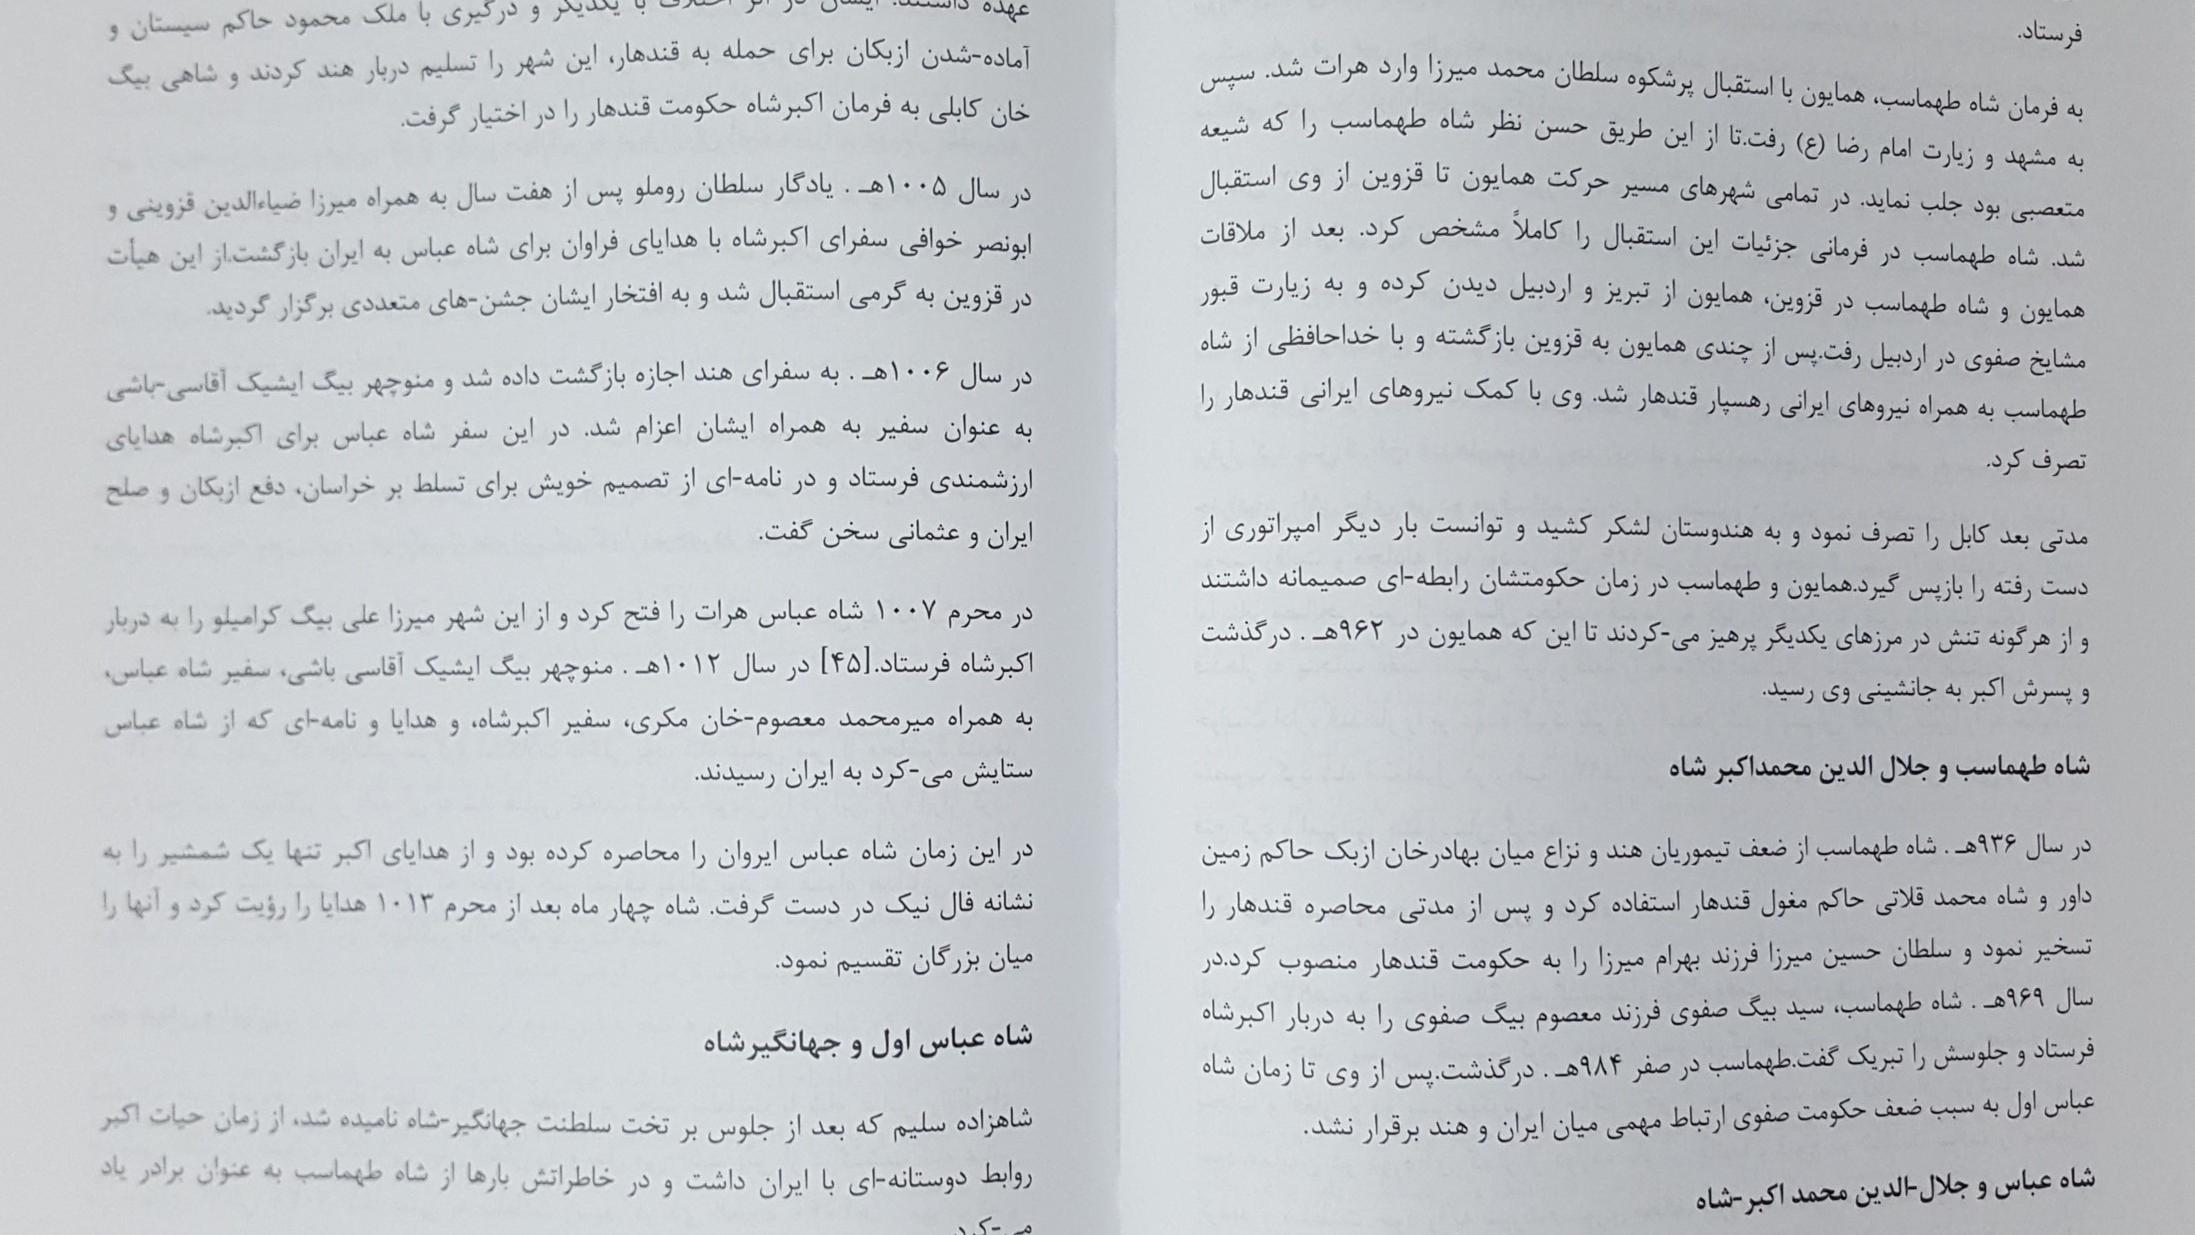 فرستاد.
به فرمان شاه طهماسب، همایون با استقبال پرشکوه سلطان محمد میرزا وارد هرات شد. سپس
به مشهد و زیارت امام رضا (ع) رفت.تا از این طریق حسن نظر شاه طهماسب را که شیعه
متعصبی بود جلب نماید. در تمامی شهرهای مسیر حرکت همایون تا قزوین از وی استقبال
شد. شاه طهماسب در فرمانی جزئیات این استقبال را کاملاً مشخص کرد. بعد از ملاقات
همایون و شاه طهماسب در قزوین، همایون از تبریز و اردبیل دیدن کرده و به زیارت قبور
مشایخ صفوی در اردبیل رفت.پس از چندی همایون به قزوین بازگشته و با خداحافظی از شاه
طهماسب به همراه نیروهای ایرانی رهسپار قندهار شد. وی با کمک نیروهای ایرانی قندهار را
تصرف کرد.
مدتی بعد کابل را تصرف نمود و به هندوستان لشکر کشید و توانست بار دیگر امپراتوری از
دست رفته را بازپس گیرد.همایون و طهماسب در زمان حکومتشان رابطه-ای صمیمانه داشتند
و از هرگونه تنش در مرزهای یکدیگر پرهیز می-کردند تا این که همایون در ۹۶۲هـ . درگذشت
و پسرش اکبر به جانشینی وی رسید.
شاه طهماسب و جلال الدین محمداکبر شاه
در سال ۹۳۶هـ . شاه طهماسب از ضعف تیموریان هند و نزاع میان بهادرخان ازبک حاکم زمین
داور و شاه محمد قلاتی حاکم مغول قندهار استفاده کرد و پس از مدتی محاصره قندهار را
تسخیر نمود و سلطان حسین میرزا فرزند بهرام میرزا را به حکومت قندهار منصوب کرد.در
سال ۹۶۹هـ . شاه طهماسب، سید بیگ صفوی فرزند معصوم بیگ صفوی را به دربار اکبرشاه
فرستاد و جلوسش را تبریک گفت.طهماسب در صفر ۹۸۴هـ . درگذشت.پس از وی تا زمان شاه
عباس اول به سبب ضعف حکومت صفوی ارتباط مهمی میان ایران و هند برقرار نشد.
شاه عباس و جلال-الدین محمد اکبر-شاه
عهده داشتند. ایشان در اثر اختلاف با یکدیگر و درگیری با ملک محمود حاکم سیستان و
آماده-شدن ازبکان برای حمله به قندهار، این شهر را تسلیم دربار هند کردند و شاهی بیگ
خان کابلی به فرمان اکبرشاه حکومت قندهار را در اختیار گرفت.
در سال ۱۰۰۵هـ . یادگار سلطان روملو پس از هفت سال به همراه میرزا ضیاءالدین قزوینی و
ابونصر خوافی سفرای اکبرشاه با هدایای فراوان برای شاه عباس به ایران بازگشت.از این هیأت
در قزوین به گرمی استقبال شد و به افتخار ایشان جشن-های متعددی برگزار گردید.
در سال ۱۰۰۶هـ . به سفرای هند اجازه بازگشت داده شد و منوچهر بیگ ایشیک آقاسی-باشی
به عنوان سفیر به همراه ایشان اعزام شد. در این سفر شاه عباس برای اکبرشاه هدایای
ارزشمندی فرستاد و در نامه-ای از تصمیم خویش برای تسلط بر خراسان، دفع ازبکان و صلح
ایران و عثمانی سخن گفت.
در محرم ۱۰۰۷ شاه عباس هرات را فتح کرد و از این شهر میرزا علی بیگ کرامیلو را به دربار
اکبرشاه فرستاد.[۴۵] در سال ۱۰۱۲هـ . منوچهر بیگ ایشیک آقاسی باشی، سفیر شاه عباس،
به همراه میرمحمد معصوم-خان مکری، سفیر اکبرشاه، و هدایا و نامه-ای که از شاه عباس
ستایش می-کرد به ایران رسیدند.
در این زمان شاه عباس ایروان را محاصره کرده بود و از هدایای اکبر تنها یک شمشیر را به
نشانه فال نیک در دست گرفت. شاه چهار ماه بعد از محرم ۱۰۱۳ هدایا را رؤیت کرد و آنها را
میان بزرگان تقسیم نمود.
شاه عباس اول و جهانگیرشاه
شاهزاده سلیم که بعد از جلوس بر تخت سلطنت جهانگیر-شاه نامیده شد، از زمان حیات اکبر
روابط دوستانه-ای با ایران داشت و در خاطراتش بارها از شاه طهماسب به عنوان برادر یاد
می-کرد